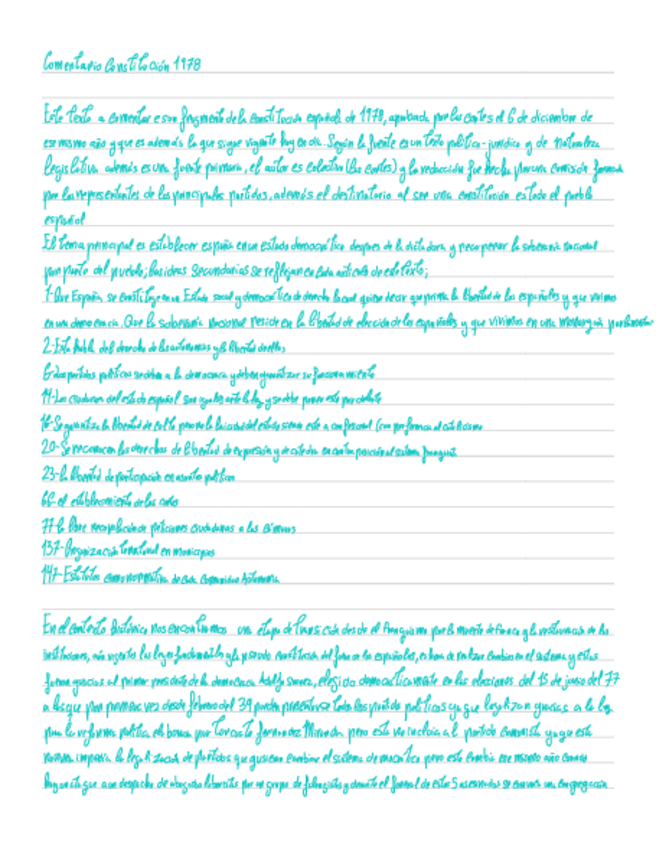 Comentario Constitución 1978
Este texto a comentar es un fragmento de la constitución española de 1978, aprobada por las cortes el 6 de diciembre de
ese mismo año y que es además la que sigue vigente hoy en día. Según la fuente es un texto político-jurídico y de naturaleza
legislativa además es una fuente primaria, el autor es colectivo (las cortes) y la redacción fue hecha por una comisión formada
por los representantes de los principales partidos, además el destinatario al ser una constitución es todo el pueblo
español
El tema principal es establecer españa en un estado democrático despues de la dictadura y recuperar la soberania nacional
por parte del pueblo, las ideas secundarias se reflejan en cada articulo de este texto;
1-Que España se constituye en un Estado social y democrático de derecho lo cual quiere decir que prima la libertad de los españoles y que vivimos
en una democracia. Que la soberanía nacional reside en la libertad de elección de los españoles y que vivimos en una monarquía parlamentaria
2-Esta habla del derecho de las autonomias y la libertad de ellas
6-Los partidos políticos se deben a la democracia y deben garantizar su funcionamiento
14-Los ciudadanos del estado español son iguales ante la ley y se debe poner este por delante
16-Se garantiza la libertad de culto pero no la laicidad del estado siendo este a confesional (con preferencia al catolicismo
20-Se reconocen los derechos de libertad de expresión y de catedra en contraposición al sistema franquista
23-la libertad de participación en asuntos políticos
66-el establecimiento de las cortes
77-la libre recopilación de peticiones ciudadanas a las cámaras
137-Organización territorial en municipios
147-Estatutos como normativa de cada Comunidad Autónoma
En el contexto histórico nos encontramos una etapa de transición desde el franquismo por la muerte de franco y la restauración de las
instituciones, aún vigentes las leyes fundamentales y la pseudo constitución del fuero de los españoles, es hora de realizar cambios en el sistema y estas
forma gracias al primer presidente de la democracia Adolfo Suarez, elegido democráticamente en las elecciones del 15 de junio del 77
a las que por primera vez desde febrero del 39 pueden presentarse todos los partidos políticos ya que legalizan gracias a la ley
para la reforma política elaborada por Torcuato Fernandez Miranda pero esta no incluía al partido comunista ya que esta
norma impedía la legalización de partidos que quisieran cambiar el sistema democratico pero esto cambia ese mismo año cuando
hay un ataque a un despacho de abogados laboristas por un grupo de falangistas y durante el funeral de estos 5 asesinados se convoca una congregación